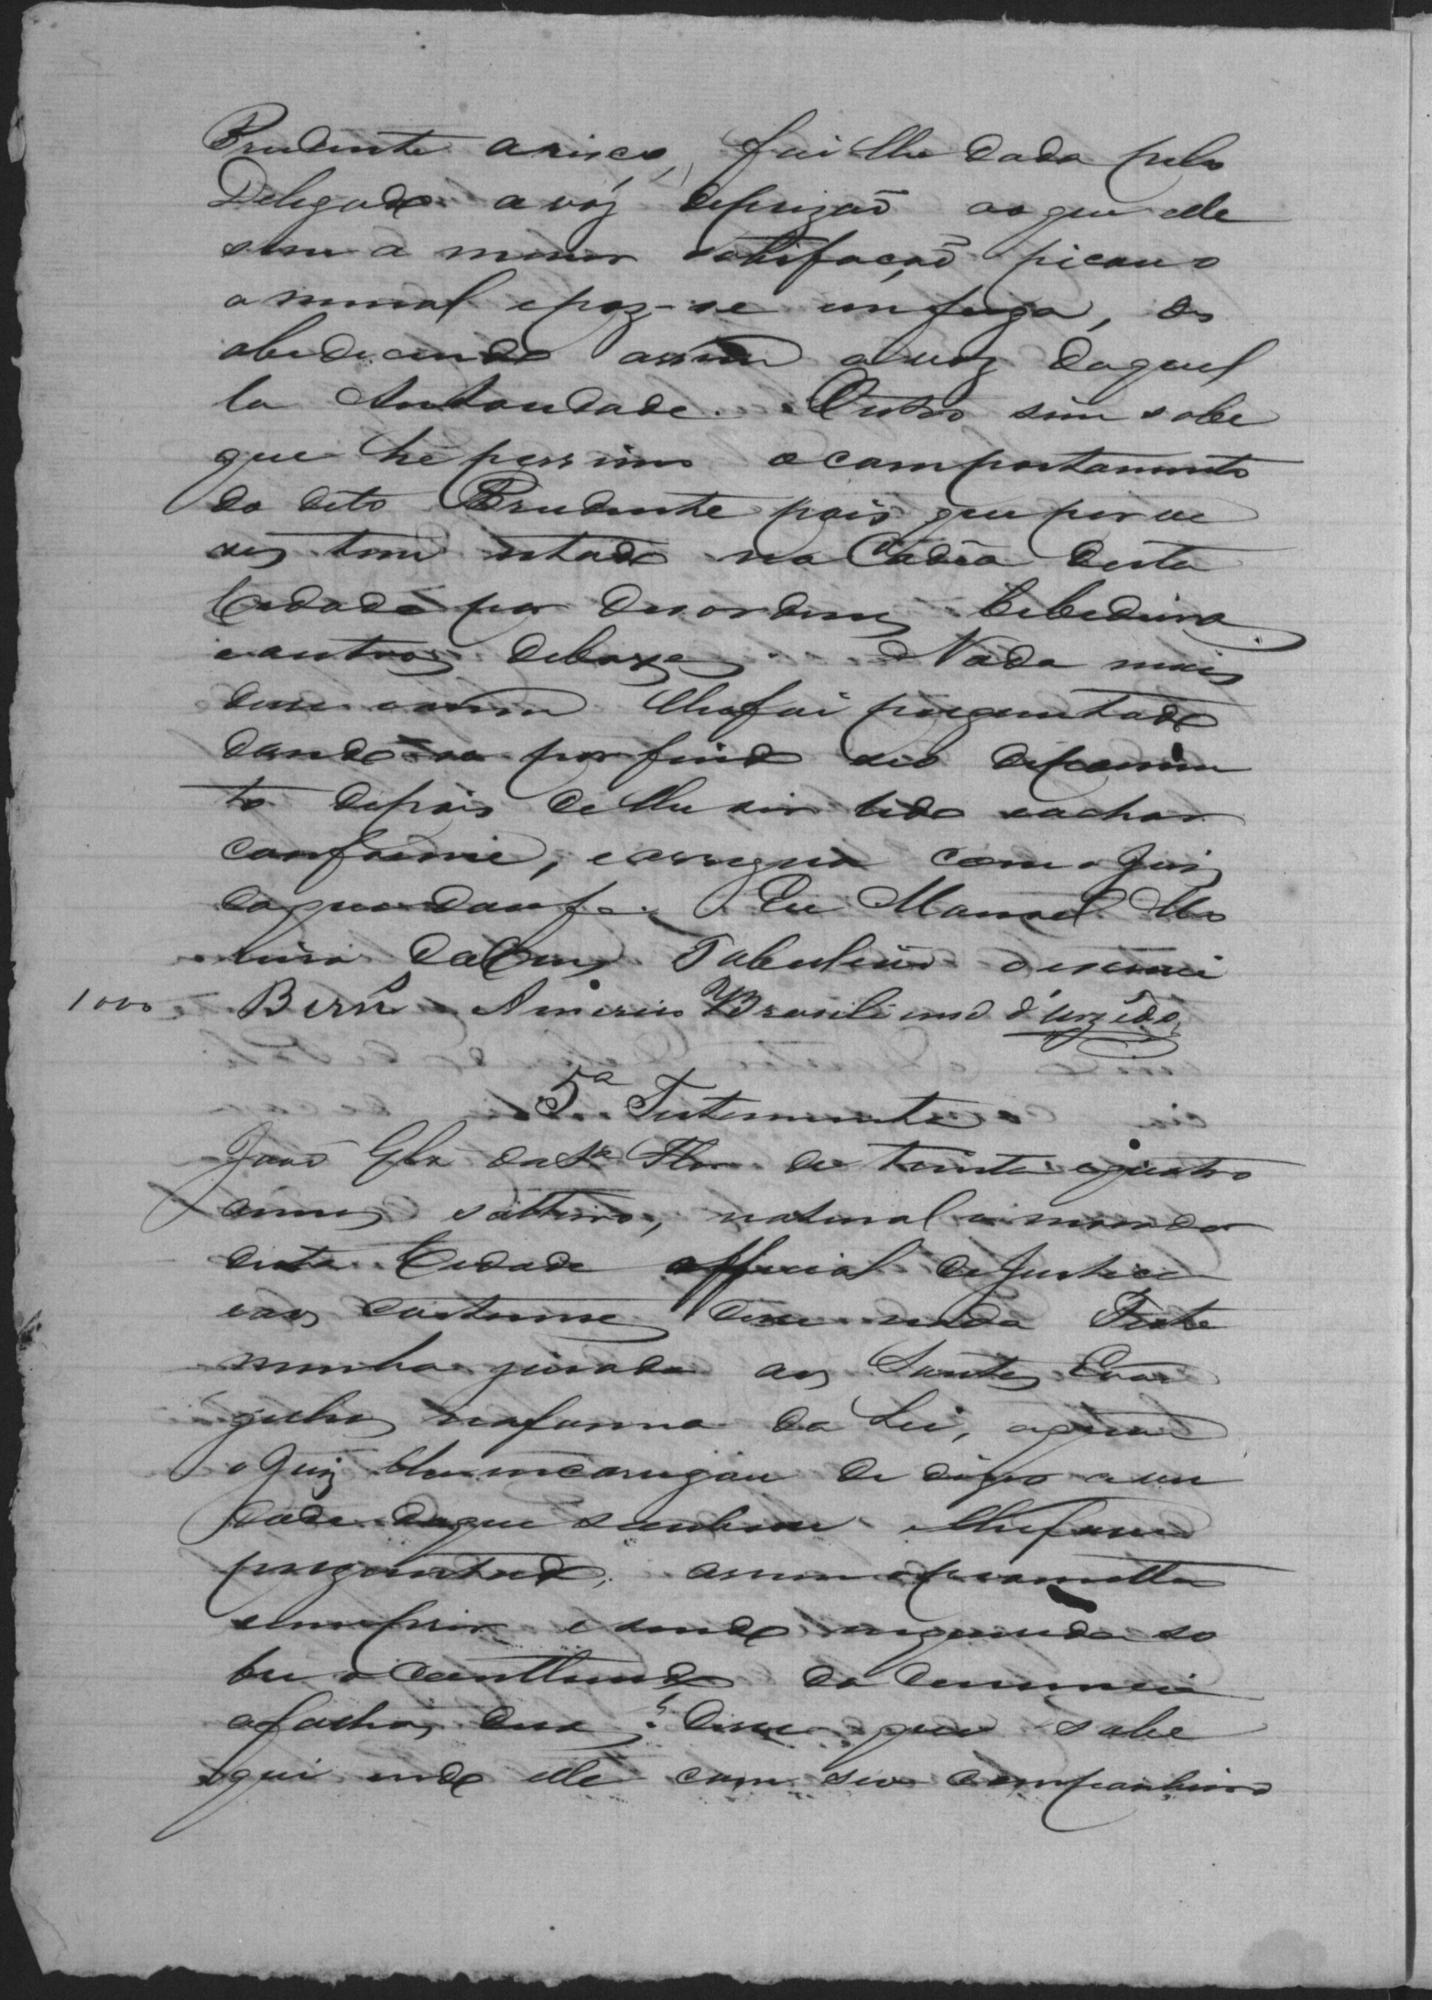 Prudente arisco, foi lhe dada pelo
Delegado a vóz deprizaõ aoque elle
sem a menor satisfacaõ picou o
animal epoz-se em fuga, des
abedecendo assim a voz daquel
la Authoridade. Outro sim sabe
que hé pessimo ocomportamento
do dito Prudente pois que por ve
zes tem estado na Cadêa desta
Cidade por desordens bebedeira
e outros deboxes. Nada mais
disse e assim lhe foi perguntado
dando-se por findo seo depoimen
to depois de lhe ser lido e achar
conforme, e assigna com o Juiz
do que dou fé. Eu Manoel
da Cruz Tabeliaõ o escrevi
1000 Bessa Americo Brasiliano d'Urzêdo
5ª Testemunha
Joaõ Glz da Sª Flor de trinta e quatro
annos solteiro, natural e morador
desta Cidade official de Justiça
e aos costumes disse nada Teste
munha jurada aos Santos Evan
gelhos na forma da Lei, a quem
o Juiz lhe encarregou de dizer a ver
dade do que soubesse e lhe fosse
perguntado, assim o prometteu
cumprir e sendo inquirida so
bre o conttheudo da denuncia
afolhas duas. Disse que sabe
que indo elle com seo companheiro